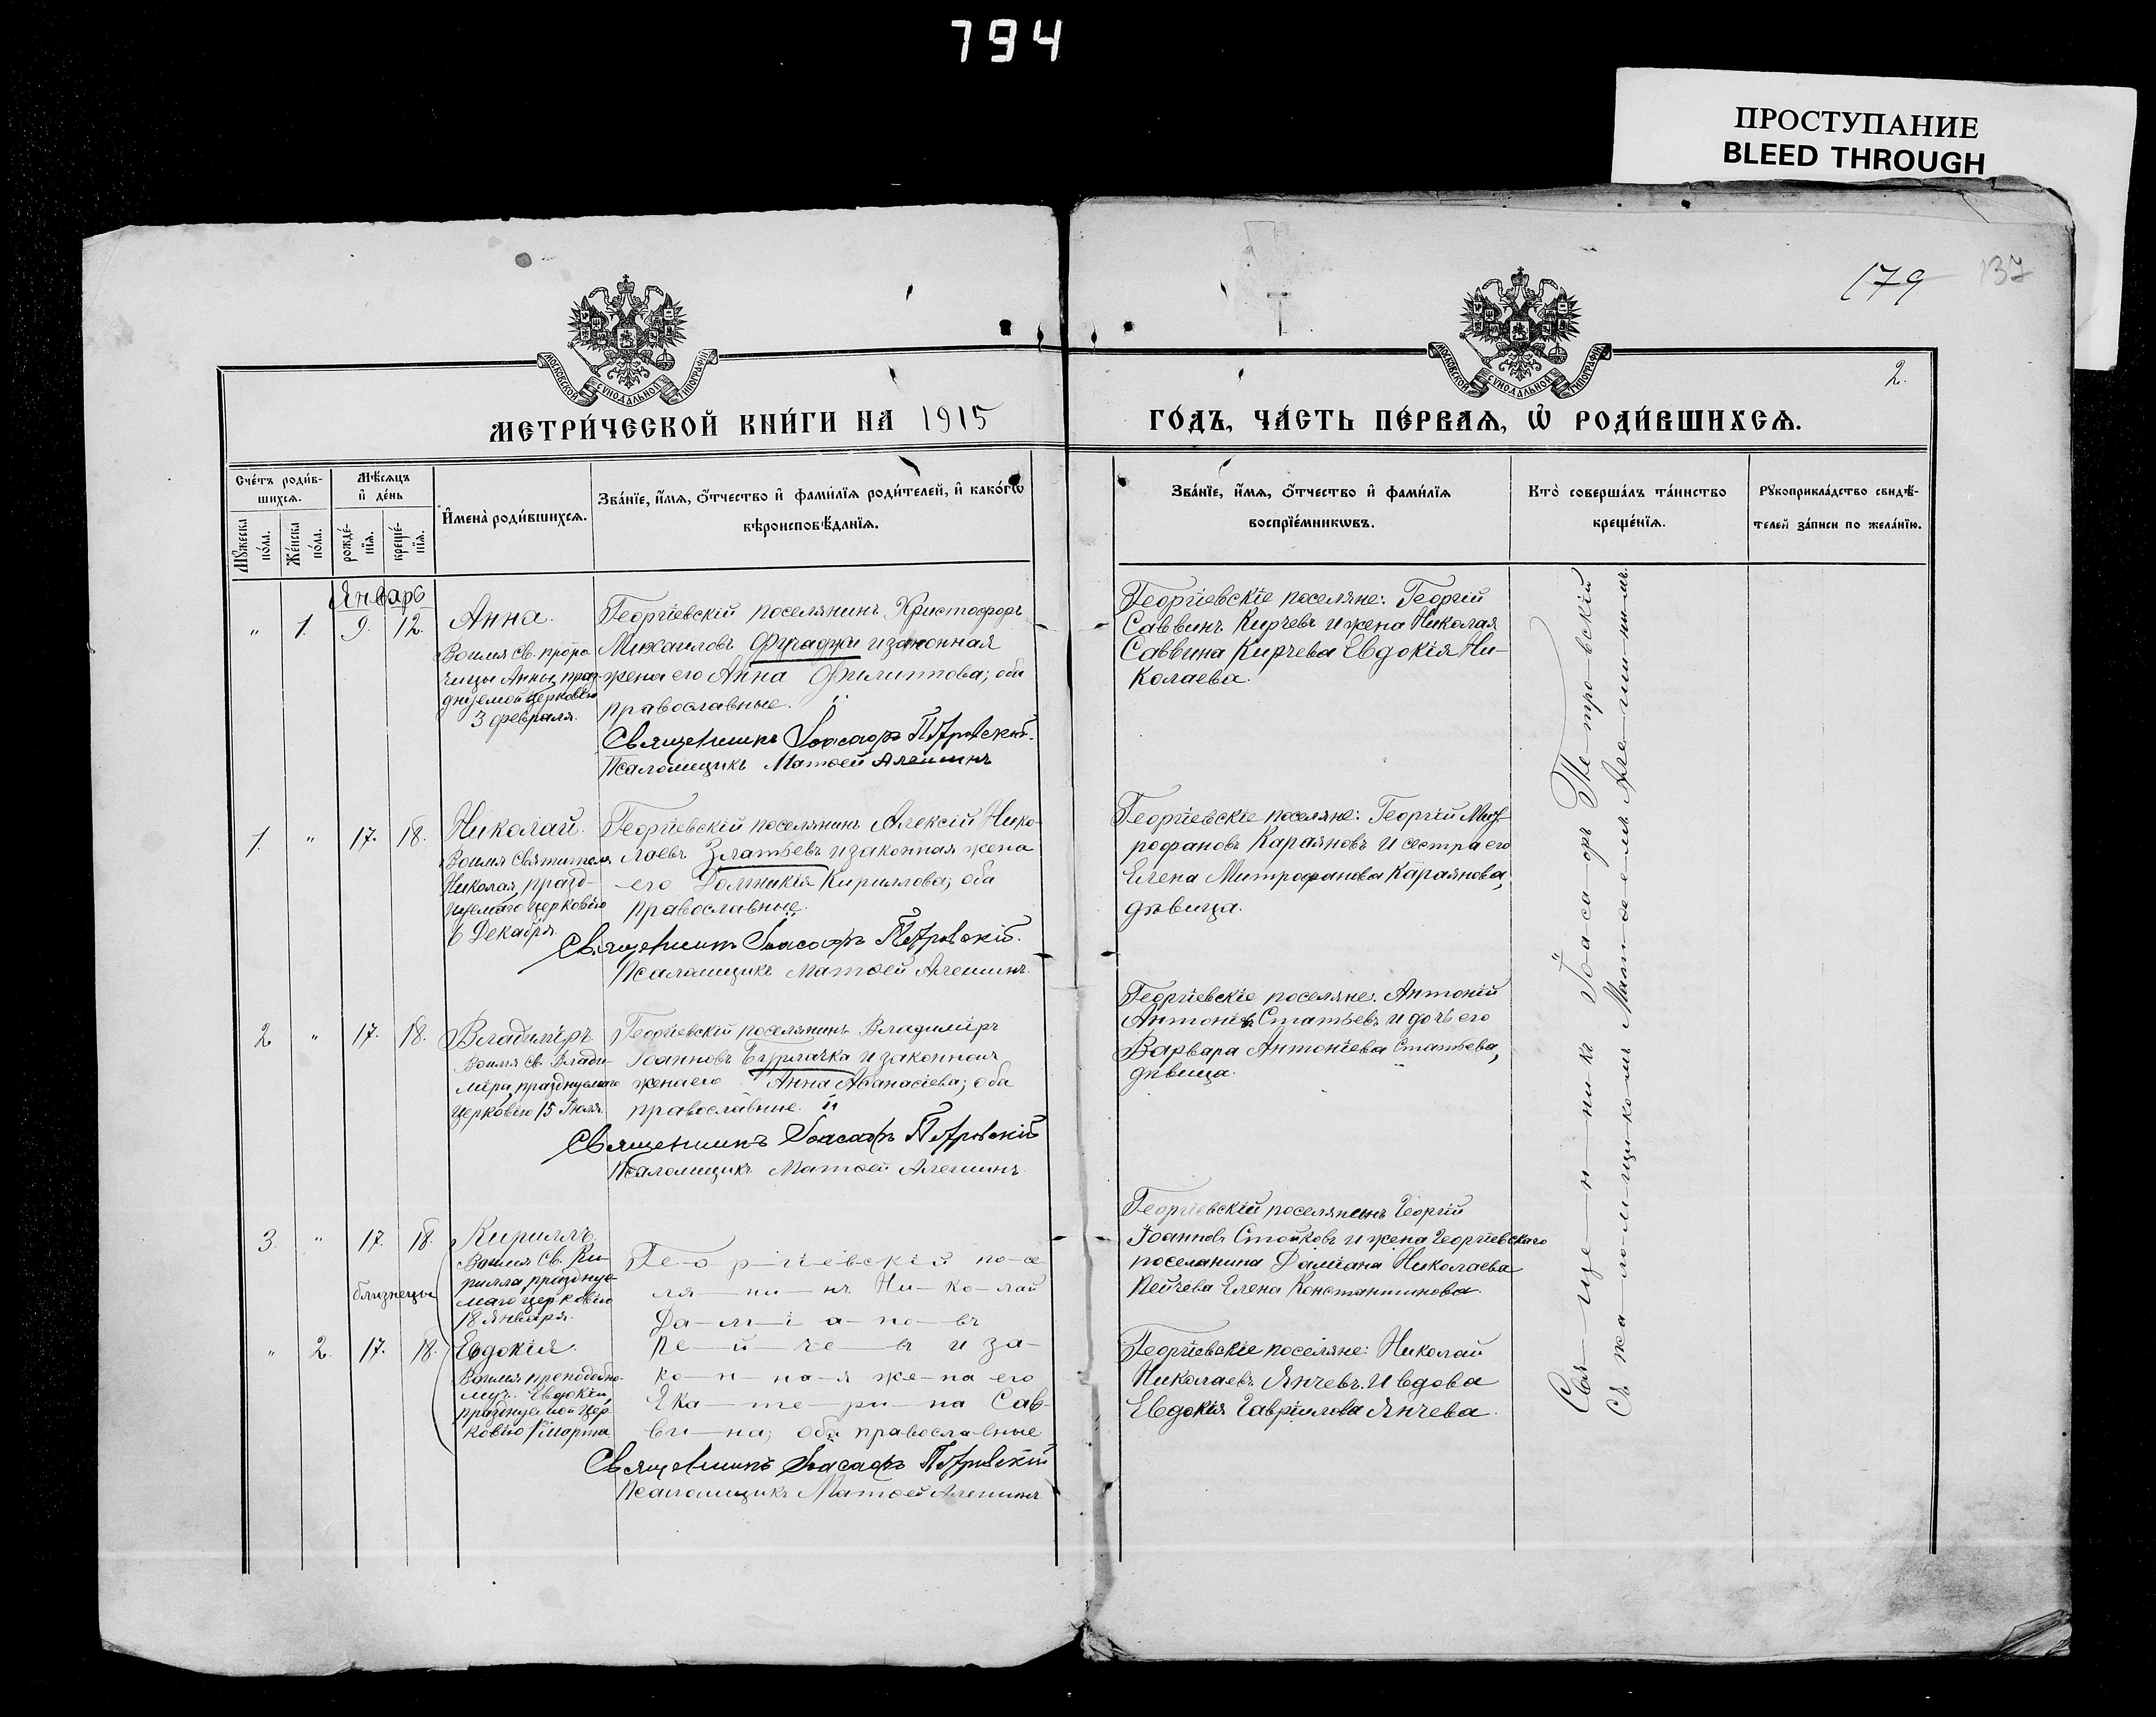 794
ПРОСТУПАНИЕ
BLEED THROUGH
179 137
2.
МОСКОВСКОЙ СУНОДАЛЬНОЙ ТИПОГРАФІИ
МОСКОВСКОЙ СУНОДАЛЬНОЙ ТИПОГРАФІИ
МЕТРИ́ЧЕСКОЙ КНИ́ГИ НА 1915 ГО́ДЪ, ЧА́СТЬ ПЕ́РВАЯ, Ѡ҆ РОДИ́ВШИХСЯ.
Сче́тъ роди́в-
шихся.
Мꙋ́жеска
по́ла.
Же́нска
по́ла.
Мѣ́сяцъ
и҆ де́нь
рожде́-
нїя.
креще́-
нїя.
И҆мена̀ роди́вшихся.
Зва́нїе, и҆́мя, ѻ҆́тчество и҆ фами́лїя роди́телей, и҆ како́гѡ
вѣроисповѣ́данїя.
Зва́нїе, и҆́мя, ѻ҆́тчество и҆ фами́лїя
воспрїе́мникѡвъ.
Кто̀ соверша́лъ та́инство
креще́нїя.
Рꙋкоприкла́дство свидѣ́-
телей за́писи по жела́нїю.
Январь
" 1. 9. 12.
Анна.
Во имя св. проро
чицы Анны, праз-
днуемой церковію
3 февраля.
Георгіевскій поселянинъ Христофоръ
Михаиловъ Фучаджи и законная
жена его Анна Филиппова; оба
православные.
Священникъ Іоасафъ Петровскій.
Псаломщикъ Матѳей Алешинъ
Георгіевскіе поселяне: Георгій
Саввинъ Кирчевъ и жена Николая
Саввина Кирчева Евдокія Ни-
колаева.
1. " 17. 18.
Николай.
Во имя Святителя
Николая, празд-
нуемаго церковію
6 Декабря.
Георгіевскій поселянинъ Алексій Нико-
лаевъ Златьевъ и законная жена
его Домникія Кириллова; оба
православные.
Священникъ Іоасафъ Петровскій.
Псаломщикъ Матѳей Алешинъ.
Георгіевскіе поселяне: Георгій Мит-
рофановъ Караяновъ и сестра его
Елена Митрофанова Караянова,
дѣвица.
2 " 17. 18.
Владиміръ.
Во имя св. Влади-
міра, празднуемаго
церковію 15 Іюля.
Георгіевскій поселянинъ Владиміръ
Іоанновъ Бурлачка и законная
жена его Анна Аѳанасіева; оба
православные.
Священникъ Іоасафъ Петровскій
Псаломщикъ Матѳей Алешинъ.
Георгіевскіе поселяне: Антоній
Антоніевъ Статьевъ и дочь его
Варвара Антоніева Статьева,
дѣвица.
3. " 17. 18.
Кириллъ.
Во имя Св. Ки-
рилла празднуе-
маго церковію
18 Января.
близнецы
" 2. 17. 18.
Евдокія.
Во имя преподобно-
муч. Евдокіи,
празднуемой цер-
ковію 1 марта.
Ге-о-р-гі-е-вскій по-се
ля-ни-нъ Ни-ко-лай
Да-м-і-а-но-въ
Пе-й-че-въ и за-
ко-н-на-я же-на его
Ека-те-ри-на Сав-
ви-на; оба православные
Священникъ Іоасафъ Петровскій
Псаломщикъ Матѳей Алешинъ
Георгіевскій поселянинъ Георгій
Іоанновъ Стойковъ и жена Георгіевскаго
поселянина Даміана Николаева
Пейчева Елена Константинова.
Георгіевскіе поселяне: Николай
Николаевъ Янчевъ и вдова
Евдокія Гавріилова Янчева.
Свя-ще-н-ни-къ Іоа-са-фъ Пе-тро-вскій
Съ пса-ло-м-щи-комъ Мат-ѳе-емъ Але-ши-ны-мъ.